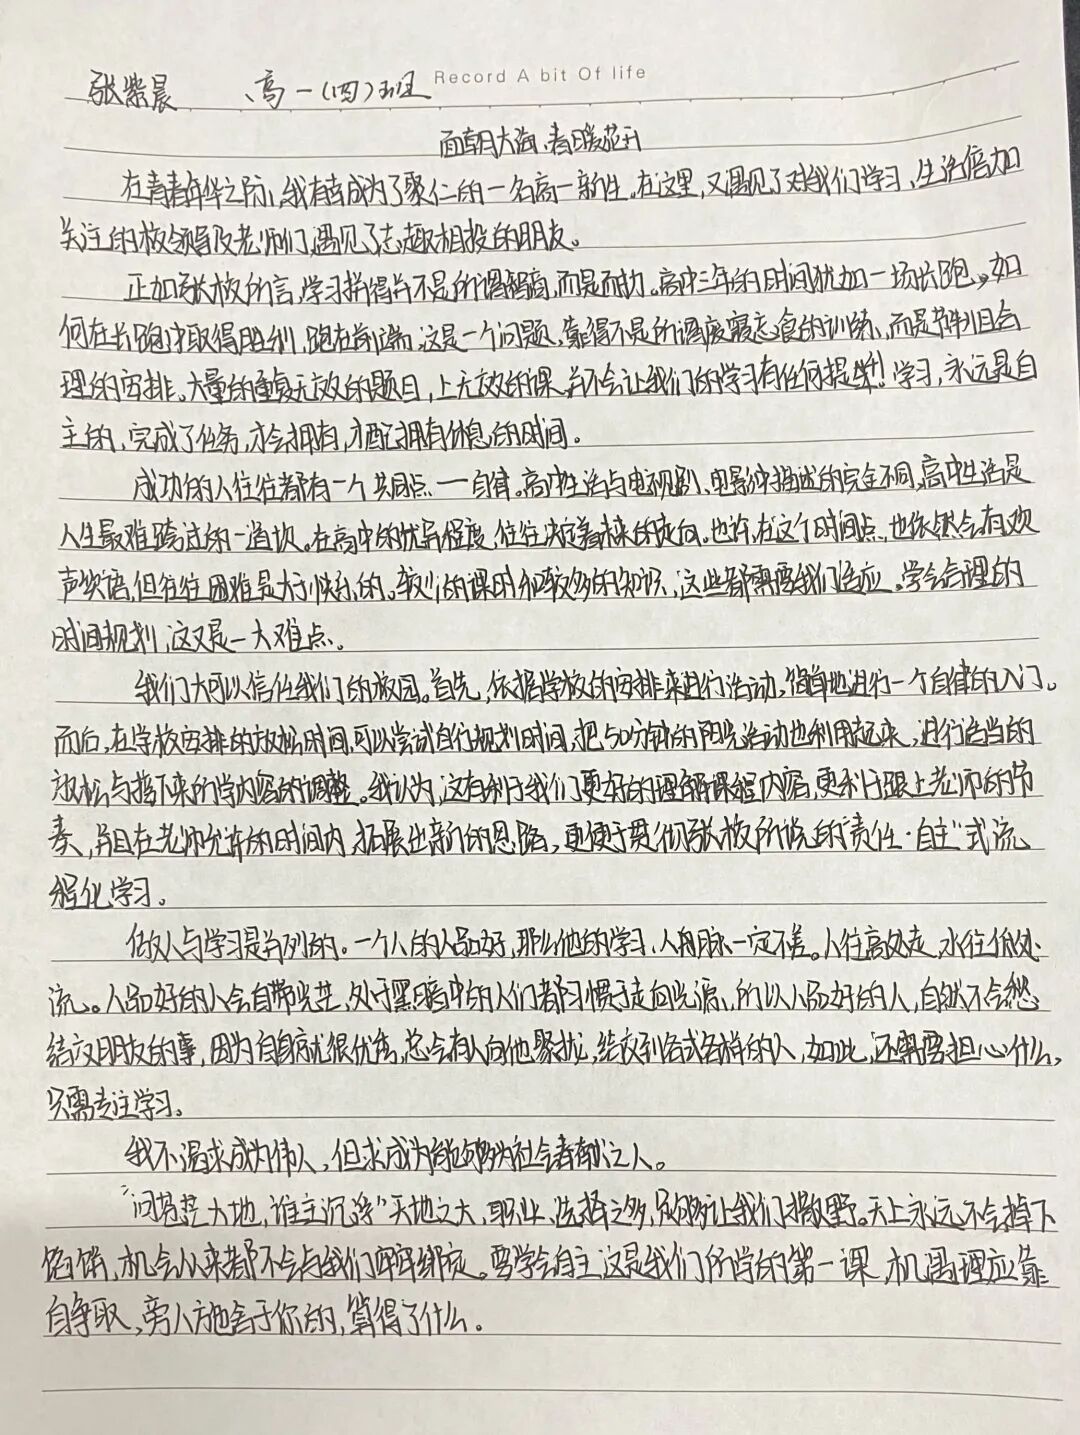 Record A bit Of life
张紫晨 高一(四)班
面朝大海,春暖花开
在青春年华之际,我有幸成为了聚仁的一名高一新生。在这里,又遇见了对我们学习、生活倍加
关注的校领导及老师们,遇见了志趣相投的朋友。
正如张校所言,学习拼得并不是所谓智商,而是耐力。高中三年的时间犹如一场长跑,如
何在长跑中取得胜利,跑在前端,这是一个问题,靠得不是所谓废寝忘食的训练,而是节制且合
理的安排。大量的重复无效的题目,上无效的课,并不会让我们的学习有任何提升!学习,永远是自
主的,完成了任务,才会拥有,才配拥有休息的时间。
成功的人往往都有一个共同点——自律。高中生活与电视剧、电影中描述的完全不同,高中生活是
人生最难跨过的一道坎。在高中的优异程度,往往决定着未来的走向。也许,在这个时间点,也依然会有欢
声笑语,但往往困难是大于快乐的。较少的课时和较多的知识,这些都需要我们适应。学会合理的
时间规划,这又是一大难点。
我们大可以信任我们的校园。首先,依据学校的安排来进行活动,简单地进行一个自律的入门。
而后,在学校安排的放松时间,可以尝试自行规划时间,把50分钟的阳光活动也利用起来,进行适当的
放松与接下来所学内容的调整。我认为,这有利于我们更好的理解课程内容,更利于跟上老师的节
奏,并且在老师允许的时间内,拓展出新的思路,更便于贯彻张校所说的"责任·自主"式流
程化学习。
做人与学习是并列的。一个人的人品好,那么他的学习、人脉一定不差。人往高处走,水往低处
流。人品好的人会自带光芒,处于黑暗中的人们都习惯于走向光源,所以人品好的人,自然不会愁
结交朋友的事,因为自身就很优秀,总会有人向他聚拢,结交到各式各样的人,如此,还需要担心什么,
只需专注学习。
我不渴求成为伟人,但求成为能够为社会奉献之人。
"问苍茫大地,谁主沉浮"天地之大,职业、选择之多,足够让我们撒野。天上永远不会掉下
馅饼,机会从来都不会与我们牢牢绑定。要学会自主,这是我们所学的第一课,机遇理应靠
自争取,旁人施舍于你的,算得了什么。